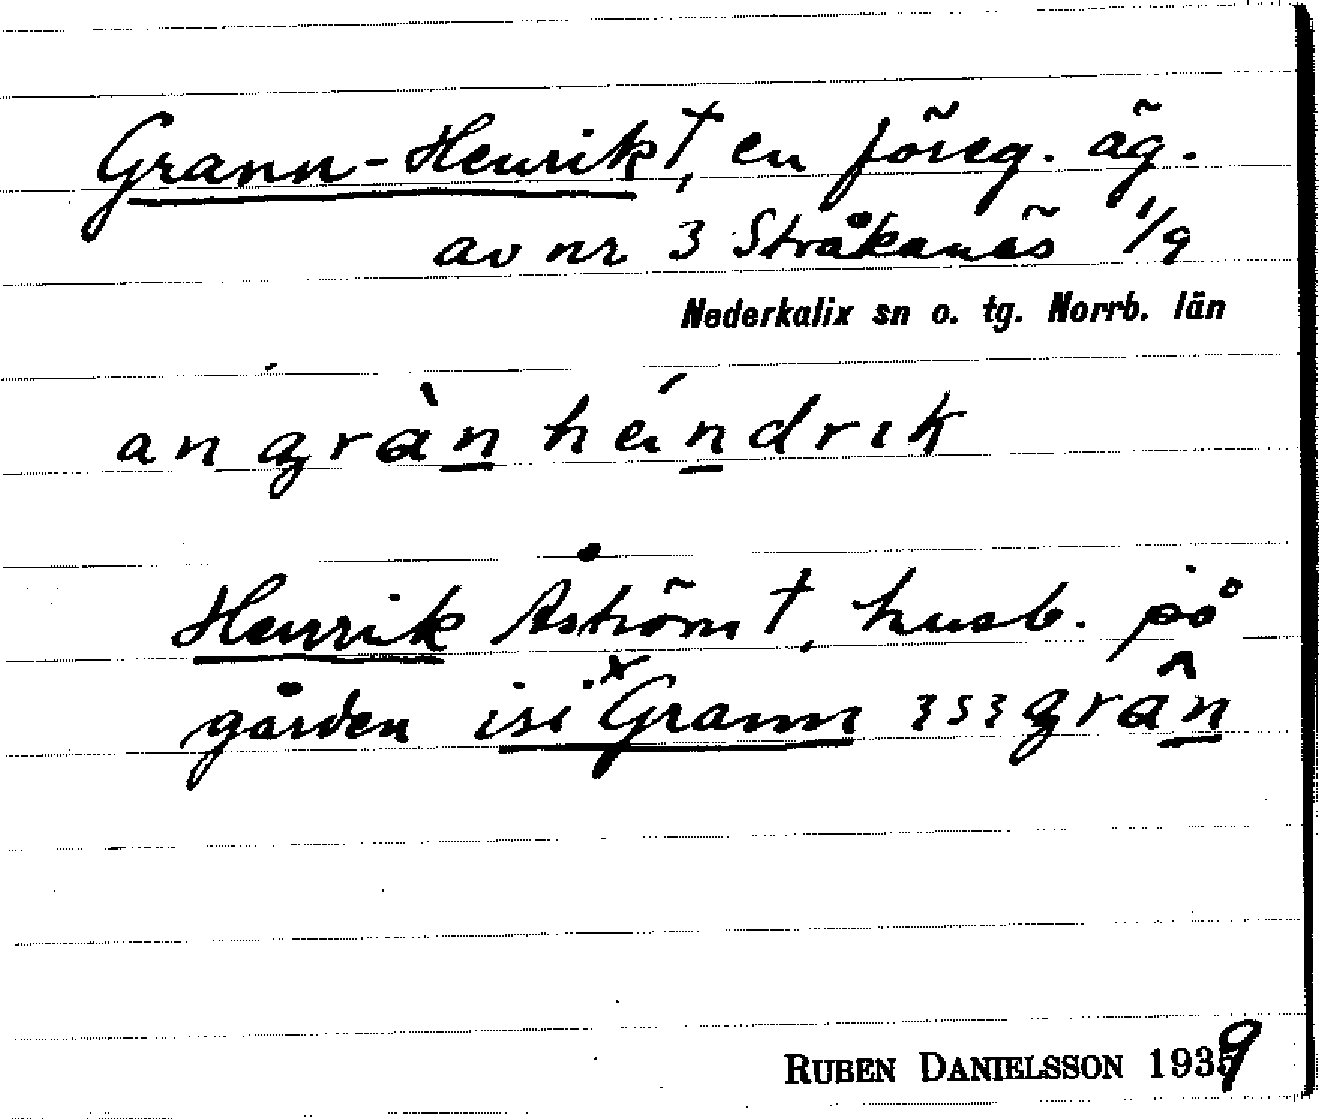 Grann-Henrik†, en föreg. äg.
av nr 3 Stråkanäs 1/9
Nederkalix sn o. tg. Norrb. län
an gràn héndrik
Henrik Åström†, husb. på
gården isi ˣGrann ɜsɜ grân
RUBEN DANIELSSON 1939